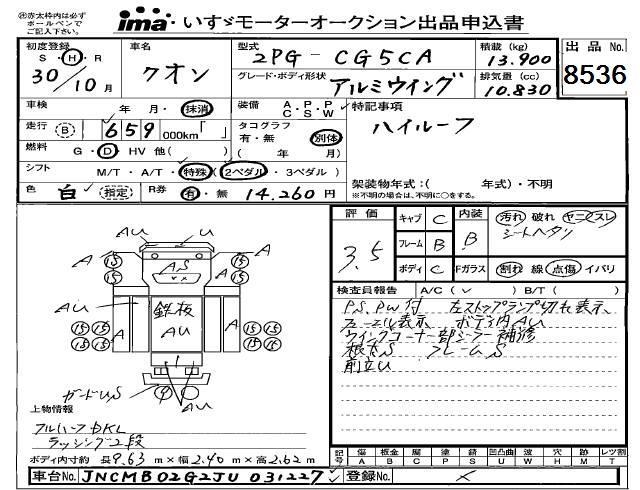 ㊟赤太枠内は必ず
ボールペンで
ご記入下さい。
ima・いすゞモーターオークション出品申込書
初度登録 S・H・R 30/10月
車名 クオン
型式 2PG-CG5CA
積載(kg) 13.900
出品No. 8536
グレード・ボディ形状 アルミウイング
排気量(cc) 10.830
車検 年 月・抹消
装備 A・P・P C・S・W
特記事項
ハイルーフ
走行(B) 659 000km「 」
タコグラフ 有・無 別体
( 年 月)
燃料 G・D・HV 他( )
シフト M/T・A/T・特殊(2ペダル・3ペダル)
架装物年式:( 年式)・不明
※不明の場合は、不明に○をする。
色 白(指定)
R券 有・無 14.260円
評価 3.5
キャブ C
内装 B
汚れ 破れ ヤニ スレ
シートヘタリ
フレーム B
ボディ C
Fガラス 割れ 線 点傷 イバリ
AU U
A A
15 15
AS
AU 鉄板 A
AU
15 15 15 15
15 15 15
ガードU,S
AU
検査員報告 A/C(✓) B/T( )
P.S, PW付 左ストップランプ切れ表示
フューエル表示 ボディ内AU
ウイングコーナー部シーラー補修
根太S フレームS
前立U
上物情報
フルハーフDKL
ラッシング2段
ボディ内寸約 長9.63m×巾2.40m×高2.62m
記号 傷A 板金B 腐C 塗P 錆S 凹凸曲U 波W 穴H 跡M レツ割T
車台No. JNCMB02G2JU031227
登録No.